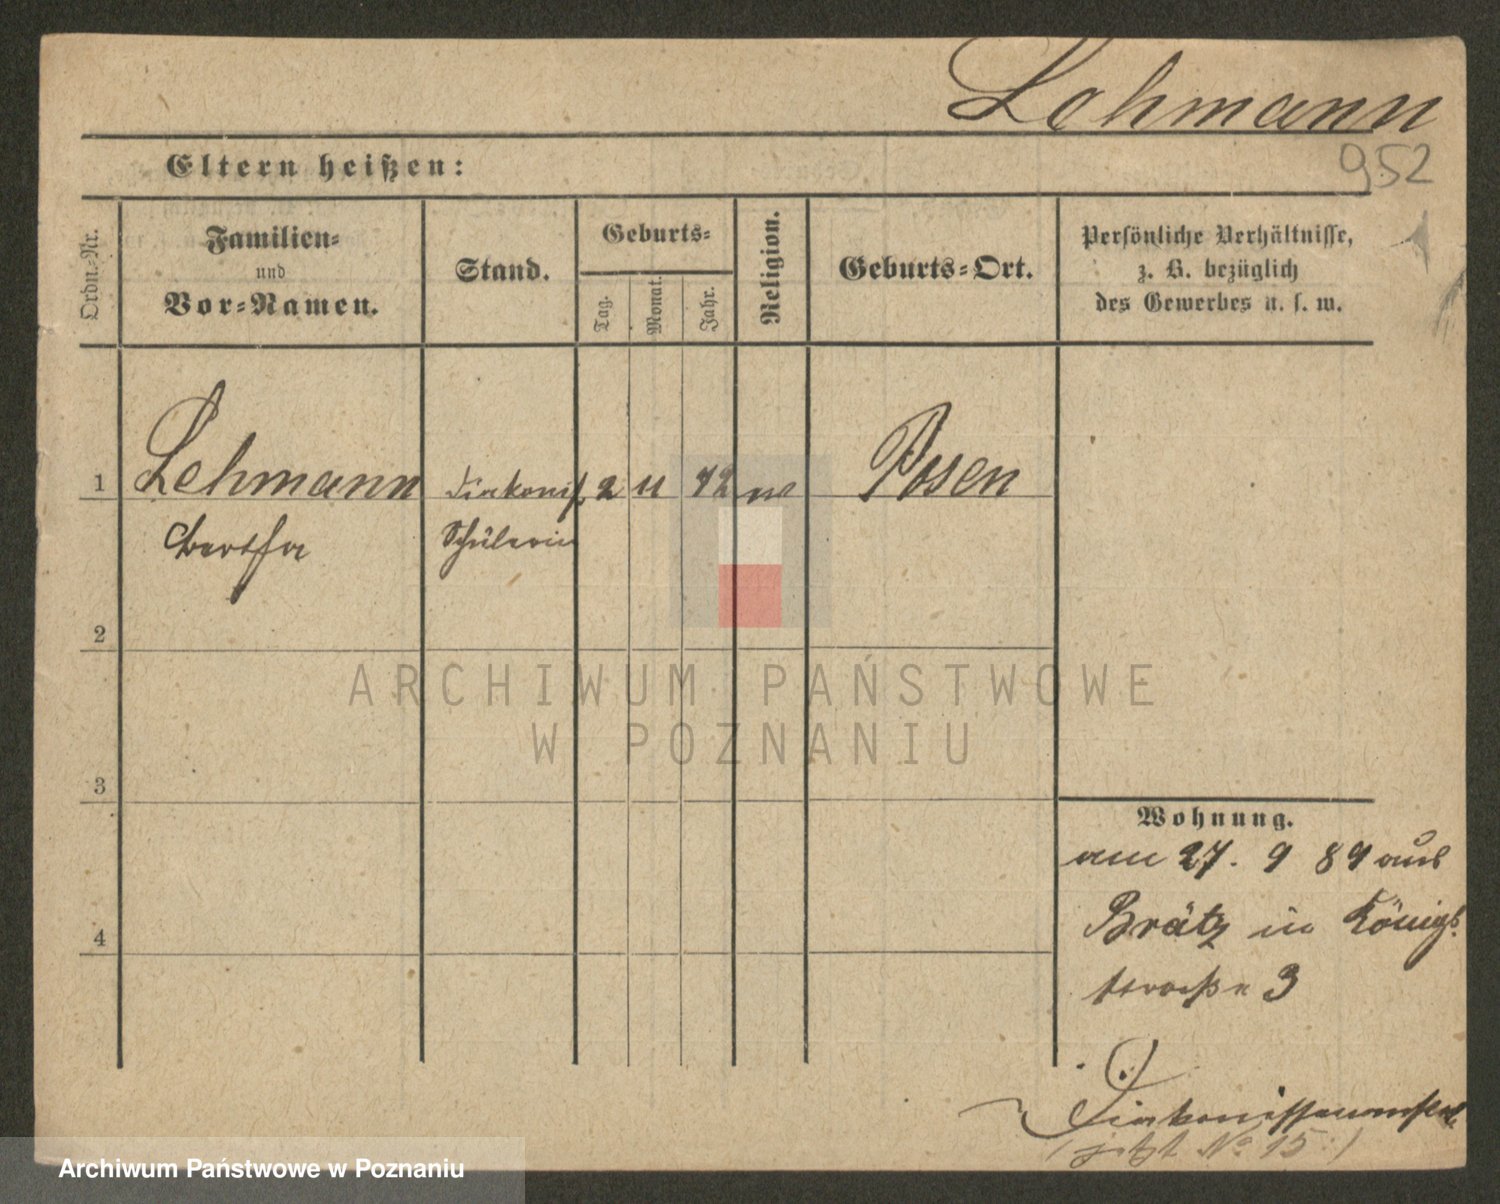 Lehmann
952
Eltern heißen:
Ordn.-Nr.
Familien-
und
Vor-Namen.
Stand.
Geburts-
Tag.
Monat.
Jahr.
Religion.
Geburts-Ort.
Persönliche Verhältnisse,
z. B. bezüglich
des Gewerbes u. s. w.
1
Lehmann
Diakoniß 2 11 72
Posen
Bertha
Schülerin
2
ARCHIWUM PAŃSTWOWE
W POZNANIU
3
Wohnung.
am 27. 9 89 aus
Brätz in Königs
straße 3
4
Diakonissenanstalt
(jetzt No 15:)
Archiwum Państwowe w Poznaniu